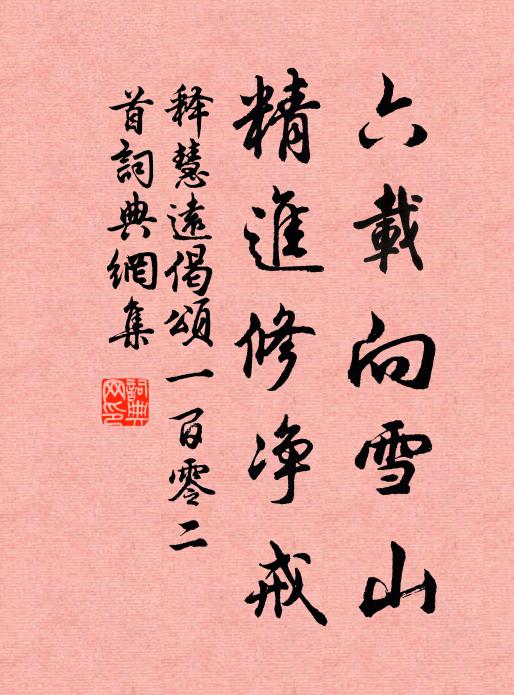 六載向雪山
精進修净戒
释慧遠偈頌一百零二
首詞典網集
詞典網印